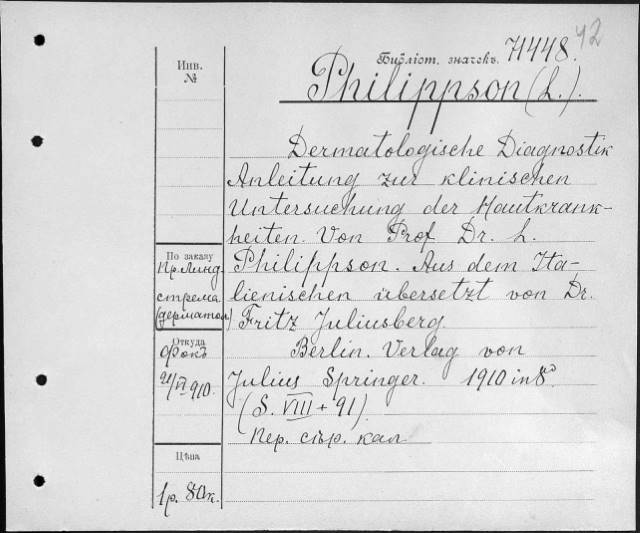 42
Библіот. значекъ. 71448.
Инв.
№
Philippson (L.).
Dermatologische Diagnostik
Anleitung zur klinischen
Untersuchung der Hautkrank-
heiten. Von Prof. Dr. L.
Philippson. Aus dem Ita-
lienischen übersetzt von Dr.
Fritz Juliusberg.
Berlin. Verlag von
Julius Springer. 1910 in 8°.
(S. VIII + 91).
Пер. сѣр. кал
По заказу
Пр. Линд
стрема
(дерматол)
Откуда
Фокъ
21/VI 910.
Цѣна
1р. 80к.